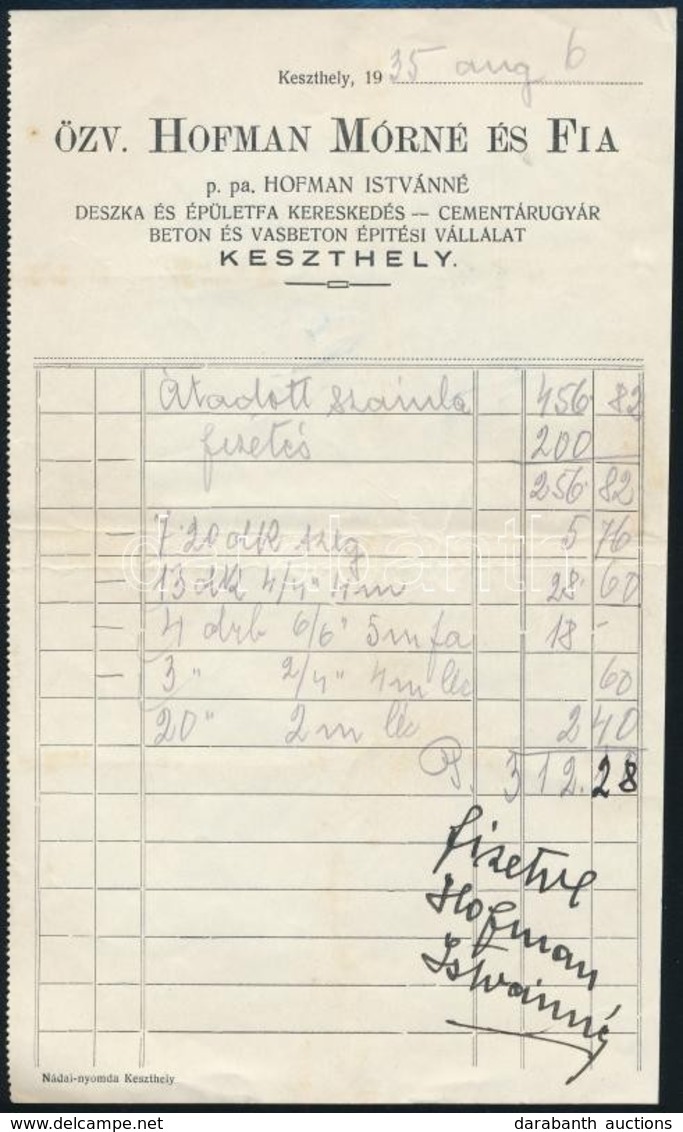 Keszthely, 1935 aug 6
ÖZV. HOFMAN MÓRNÉ ÉS FIA
p. pa. HOFMAN ISTVÁNNÉ
DESZKA ÉS ÉPÜLETFA KERESKEDÉS — CEMENTÁRUGYÁR
BETON ÉS VASBETON ÉPITÉSI VÁLLALAT
KESZTHELY.
Átadott számla 456 82
fizetés 200
256 82
— 7·20 szeg 5 76
— 13 4/4" 4m 28· 60
— 4 drb 6/6" 5m fa 18 -
— 3 " 2/4" 4m léc 60
20 " 2m léc 2 40
P. 312.28
fizetve
Hofman
Istvánné
Nádai-nyomda Keszthely
darabanth
darabanth auctions